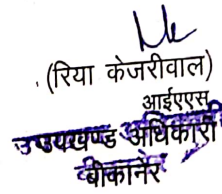 (रिया केजरीवाल)
आईएएस
उपखण्ड अधिकारी
बीकानेर